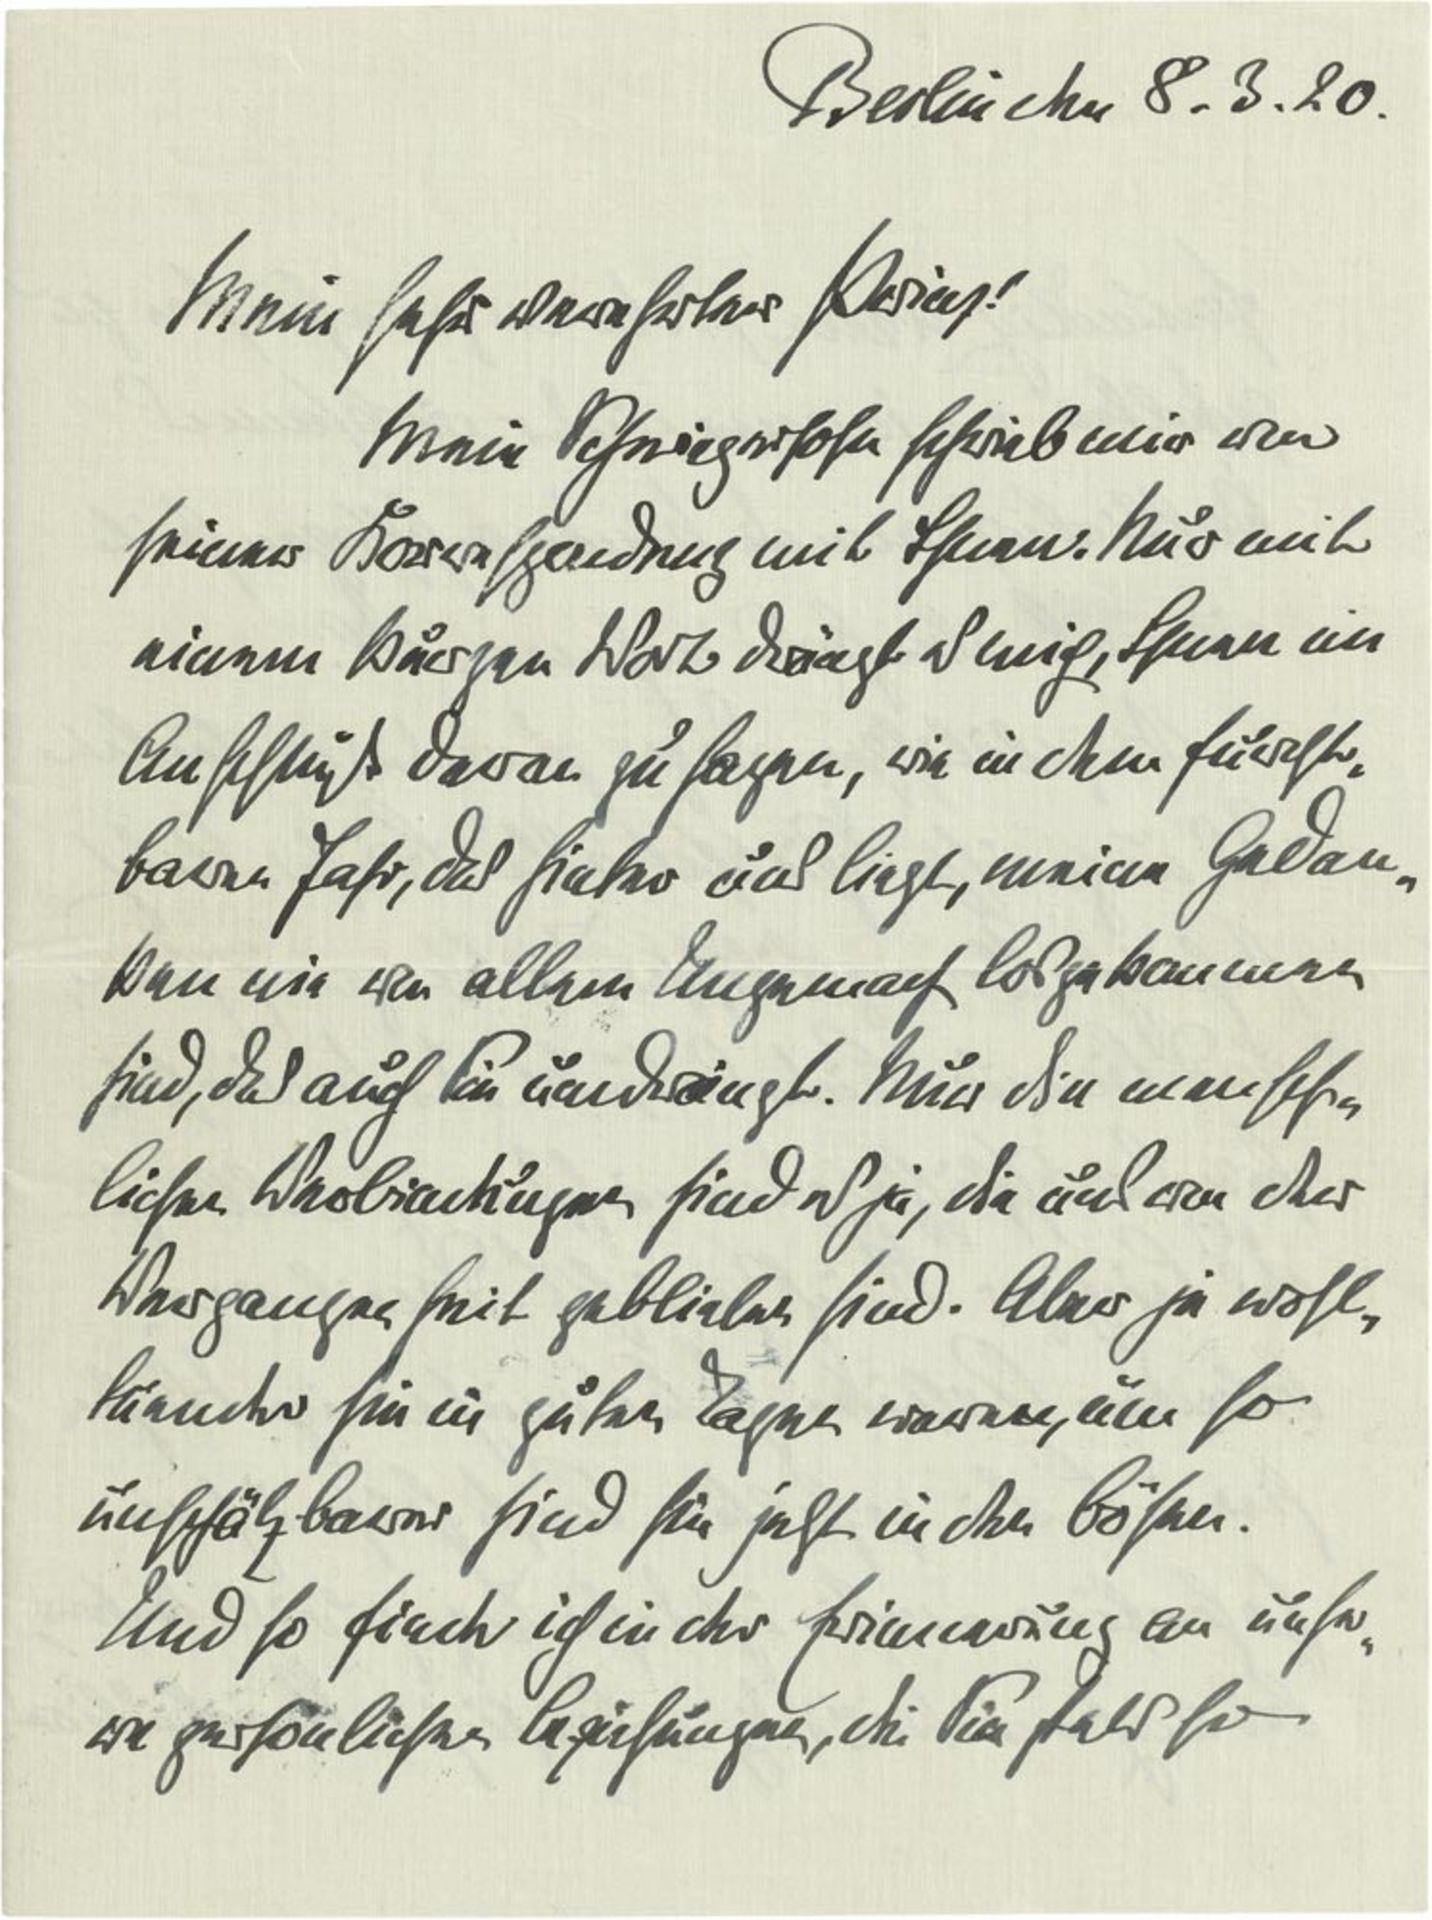 Berlin den 8.3.20.
Mein sehr verehrter Prinz!
Mein Schwiegersohn schrieb mir von
seiner Korrespondenz mit Ihnen. Nur mit
einem kurzen Wort drängt es mich, Ihnen im
Anschluß daran zu sagen, wie in dem furcht-
baren Jahr, das hinter uns liegt, meine Gedan-
ken nie von allem Ungemach losgekommen
sind, das auch Sie umdrängt. Nur die mensch-
lichen Verbindungen sind es ja, die uns von der
Vergangenheit geblieben sind. Aber je wohl-
tuender sie in guten Tagen waren, um so
unschätzbarer sind sie jetzt in den bösen.
Und so finde ich in der Erinnerung an unse-
re persönlichen Beziehungen, die Sie stets so